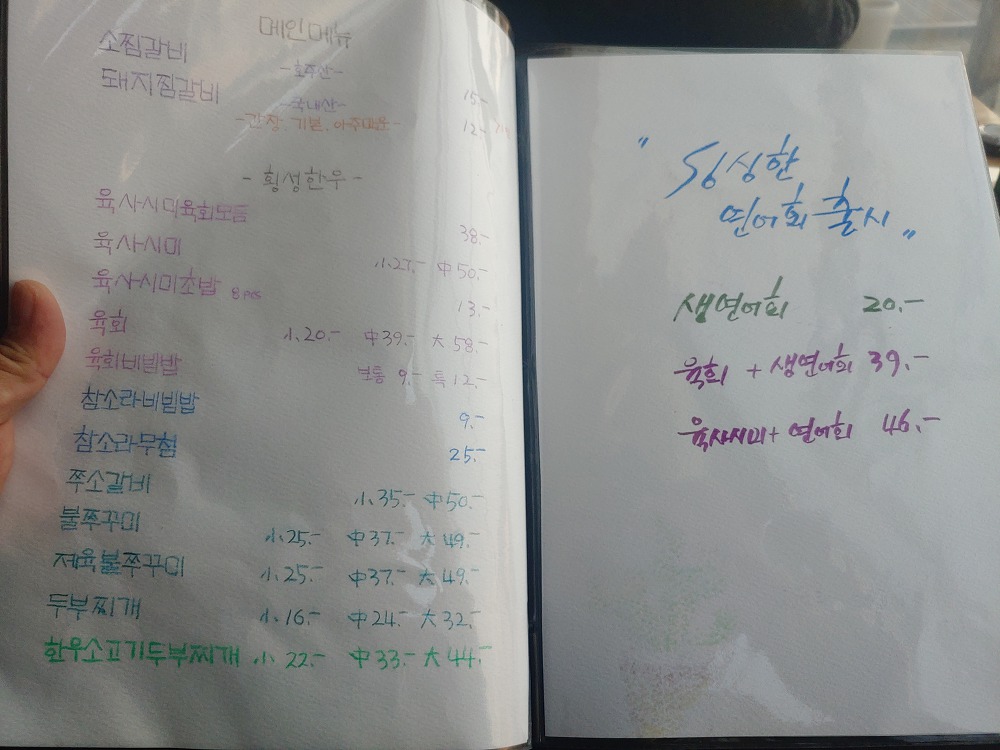 메인메뉴
소찜갈비 -호주산- 15.-
돼지찜갈비 -국내산- 12.-
-간장. 기본. 아주매운-
- 횡성한우 -
육사시미육회모듬 38.-
육사시미 小27.- 中50.-
육사시미초밥 8pcs 13.-
육회 小20.- 中39.- 大58.-
육회비빔밥 보통 9.- 특12.-
참소라비빔밥 9.-
참소라무침 25.-
쭈소갈비 小35.- 中50.-
불쭈꾸미 小25.- 中37.- 大49.-
제육불쭈꾸미 小25.- 中37.- 大49.-
두부찌개 小16.- 中24.- 大32.-
한우소고기두부찌개 小22.- 中33.- 大44.-
"싱싱한
연어회 출시"
생연어회 20.-
육회 + 생연어회 39.-
육사시미+ 연어회 46.-